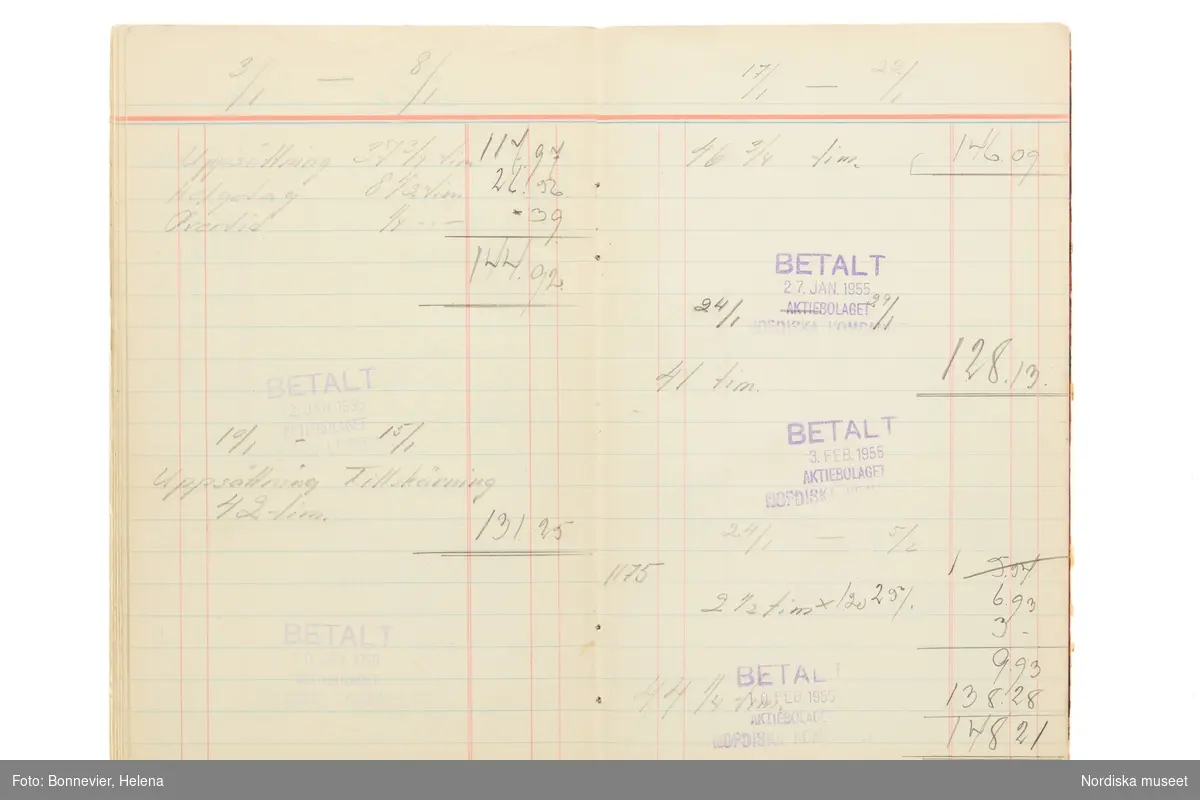 3/1 — 8/1
Uppsättning 37 3/4 tim 117.97
Helgdag 8 1/2 tim. 26.56
Övertid 1/4 -39
144.92
BETALT
JAN. 1955
AKTIEBOLAGET
10/1 - 15/1
Uppsättning Tillskärning
42 tim.
131.25
BETALT
17/1 — 22/1
46 3/4 tim. 146.09
BETALT
27. JAN. 1955
AKTIEBOLAGET
NORDISKA KOMPA
24/1 29/1
41 tim. 128.13
BETALT
3. FEB. 1955
AKTIEBOLAGET
NORDISKA
24/1 — 5/2
1175
2 1/2 tim x 120 25%. 6.93
3 -
9.93
44 1/4 tim. 138.28
148 21
BETAL
10. FEB. 1955
AKTIEBOLAGE
NORDISKA
Foto: Bonnevier, Helena
Nordiska museet